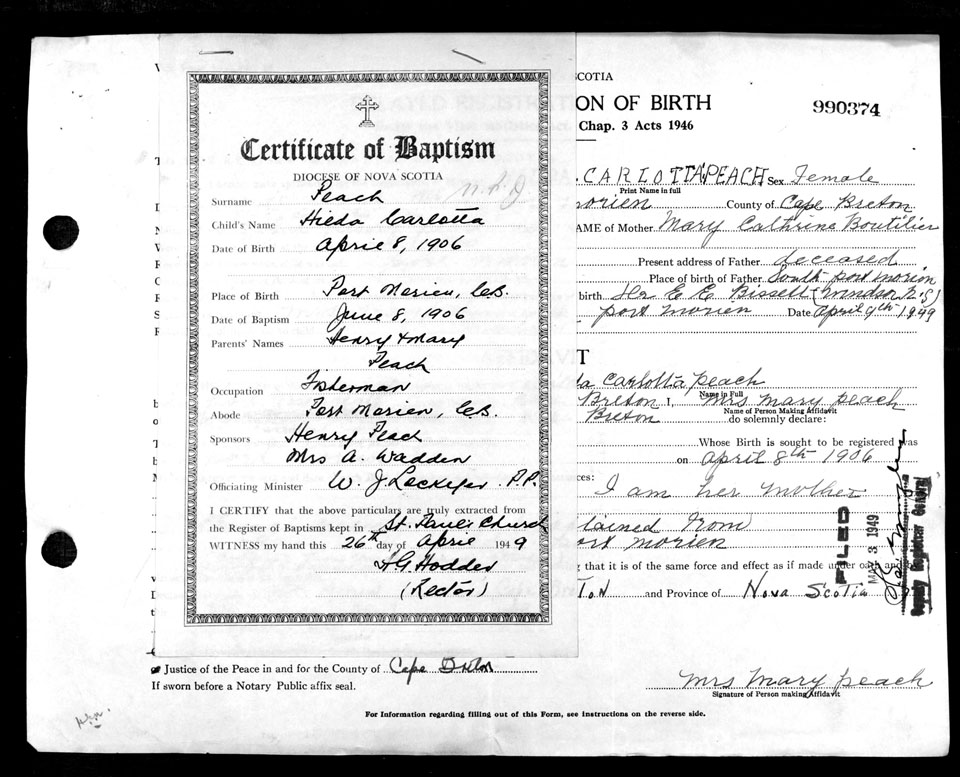 Certificate of Baptism
DIOCESE OF NOVA SCOTIA
Surname Peach
Child's Name Hilda Carlotta
Date of Birth April 8, 1906
Place of Birth Port Morien, C.B.
Date of Baptism June 8, 1906
Parents' Names Henry & Mary
Peach
Occupation Fisherman
Abode Port Morien, C.B.
Sponsors Henry Peach
Mrs A. Wadden
Officiating Minister W. J. Lockyer P.P.
I CERTIFY that the above particulars are truly extracted from
the Register of Baptisms kept in St. Paul's Church
WITNESS my hand this 26th day of April 1949
Hodder
(Rector)
SCOTIA
ON OF BIRTH
990374
Chap. 3 Acts 1946
CARLOTTA PEACH Sex Female
Print Name in full
orien County of Cape Breton
AME of Mother Mary Cathrine Boutilier
Present address of Father deceased
Place of birth of Father South port morien
birth Dr E E Bissett (Windsor N.S)
port morien Date April 9th 1949
T
da Carlotta peach
Name in Full
Breton I, Mrs Mary peach
Name of Person Making Affidavit
Breton do solemnly declare:
Whose Birth is sought to be registered was
on April 8th 1906
ces: I am her mother
tained from
ort morien
g that it is of the same force and effect as if made under oath and by
TON and Province of Nova Scotia
FILED
MAY 3 1949
Deputy Registrar General
Justice of the Peace in and for the County of Cape Breton
If sworn before a Notary Public affix seal.
Mrs Mary peach
Signature of Person making Affidavit
For Information regarding filling out of this Form, see Instructions on the reverse side.